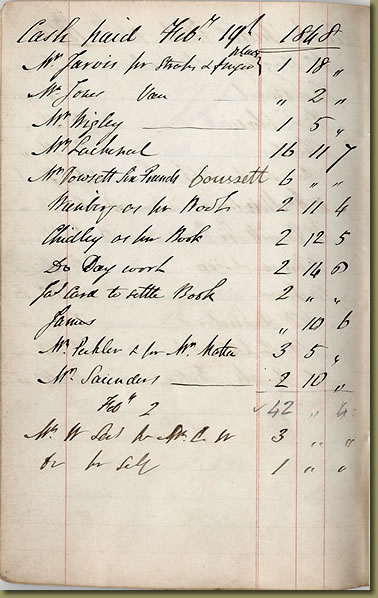 Cash paid Feby 19th 1848
Mr Jarvis for Straps & 1 18 "
Mr Jones Van " 2 "
Mr Wigley 1 5 "
Mr Lachenal 16 11 7
Mr Dowsett Six Pounds Dowsett 6 " "
as per Book 2 11 4
Chidley as per Book 2 12 5
Do Day work 2 14 6
Jas Card to settle Book 2 " "
James " 10 6
Mr & for Mr 3 5 "
Mr Saunders 2 10 "
Feby 2 42 " 4
Mr W for Mr C W 3 " "
for Self 1 " "